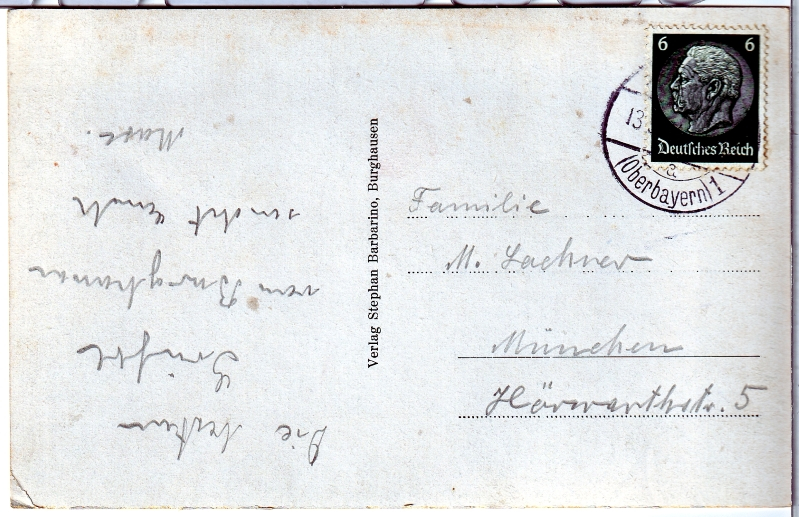 6 6
Deutsches Reich
13.
a
(Oberbayern) 1
Verlag Stephan Barbarino, Burghausen
Familie
M. Lachner
München
Hörwarthstr. 5
Die besten
Grüße
von Burghausen
sendet Euch